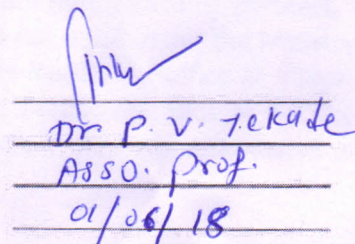 Dr. P. V. Tekade
Asso. Prof.
01/06/18